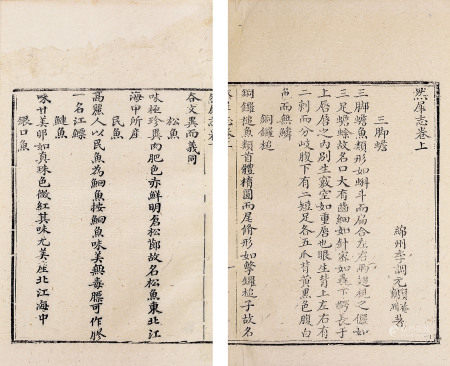 然犀志卷上
綿州李調元 著
三脚蟾
三脚蟾魚類形如蝌斗而扁合左右兩邊視之儼如
三足蟾蜍故名口大有齒細如針密如 下齶長于
上唇唇之內別生竅空如重唇也眼生背上左右有
二刺而分岐腹下有二短足各五爪背黃黑色腹白
色而無鱗
銅鑼槌
銅鑼槌魚類首體精圓而尾脩形如擊鑼槌子故名
各文異而義同
松魚
味極珍異肉肥色赤鮮明名松節故名松魚東北江
海中所產
民魚
高麗人以民魚為鮸魚按鮸魚味美無毒膘可作膠
一名江鰾
鰱魚
味甘美卵如真珠色微紅其味尤美產北江海中
銀口魚